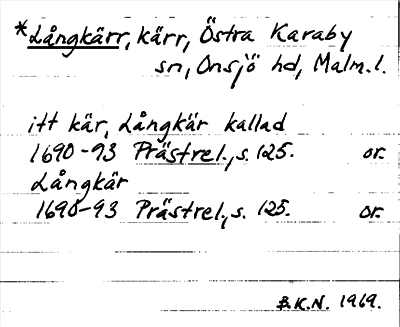 *Långkärr, kärr, Östra Karaby
sn, Onsjö hd, Malm. l.
itt kär, Långkär kallad
1690-93 Prästrel., s. 125. or.
Långkär
1690-93 Prästrel., s. 125. or.
B.K.N. 1969.